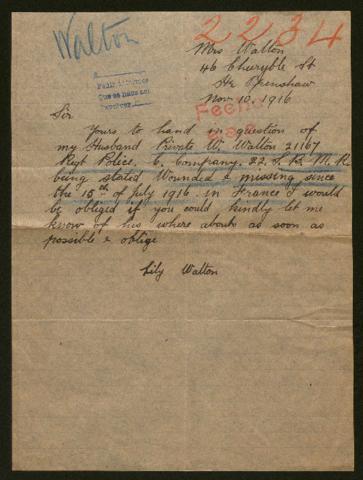 Walton
2234
Mrs Walton
46 Cheryble St
Hr Openshaw
Nov 10, 1916
Sir
Yours to hand in question of
my Husband Private W. Walton 21167
Regt Police. C. Company. 22. M.R
being stated Wounded & missing since
the 15th of July 1916. in France I would
be obliged if you could kindly let me
know of his where abouts as soon as
possible & oblige
Lily Walton